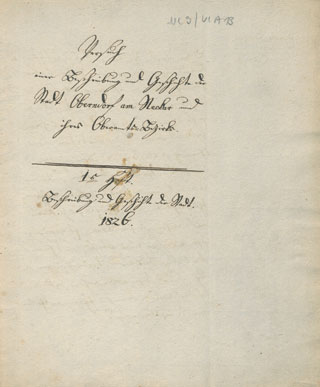 Versuch
einer Beschreibung und Geschichte der
Stadt Oberndorf am Neckar und
ihres Oberamts-Bezirks.
1s Heft.
Beschreibung und Geschichte der Stadt.
1826.